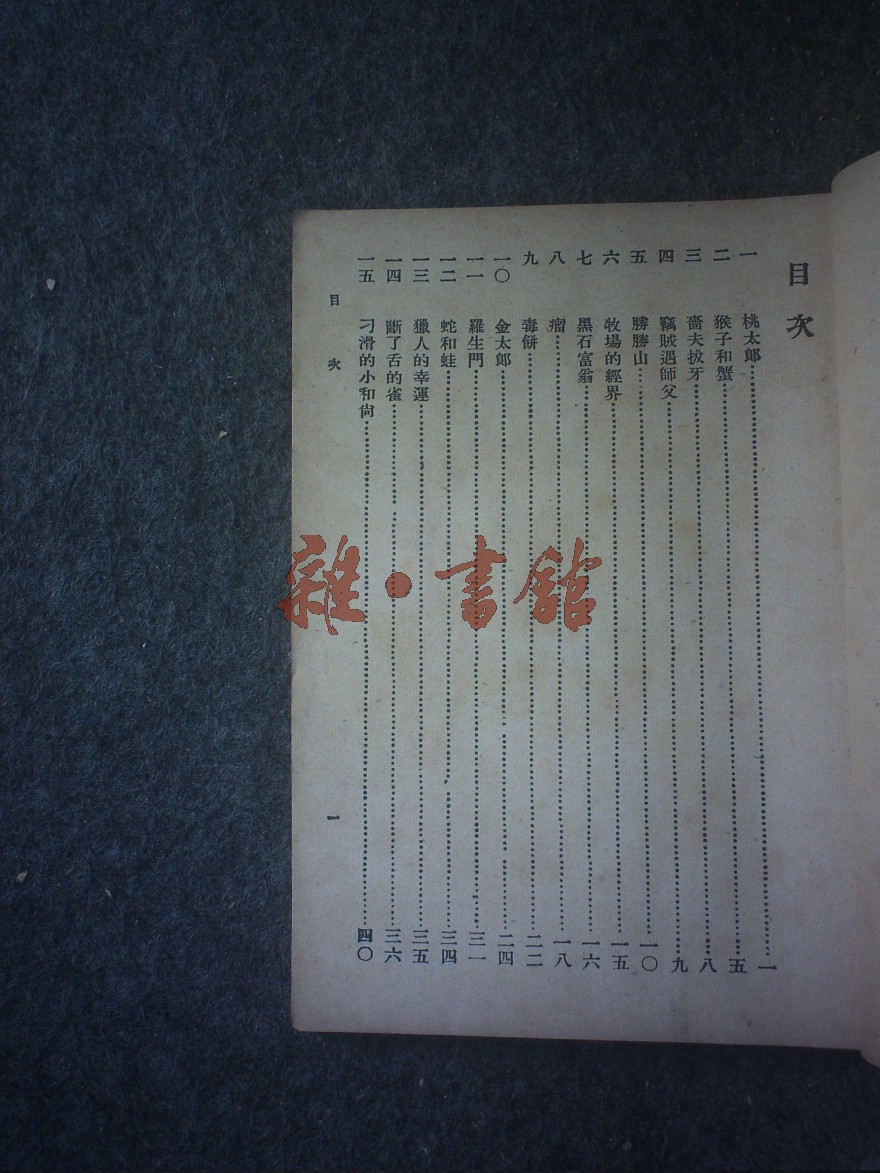 目次
一 桃太郎……一
二 猴子和蟹……五
三 嗇夫拔牙……八
四 竊賊遇師父……九
五 勝勝山……一〇
六 牧場的經界……一五
七 黑石富翁……一六
八 瘤……一八
九 毒餅……二二
一〇 金太郎……二四
一一 羅生門……三一
一二 蛇和蛙……三四
一三 獵人的幸運……三五
一四 斷了舌的雀……三六
一五 刁滑的小和尙……四〇
目次
一
雜·書館